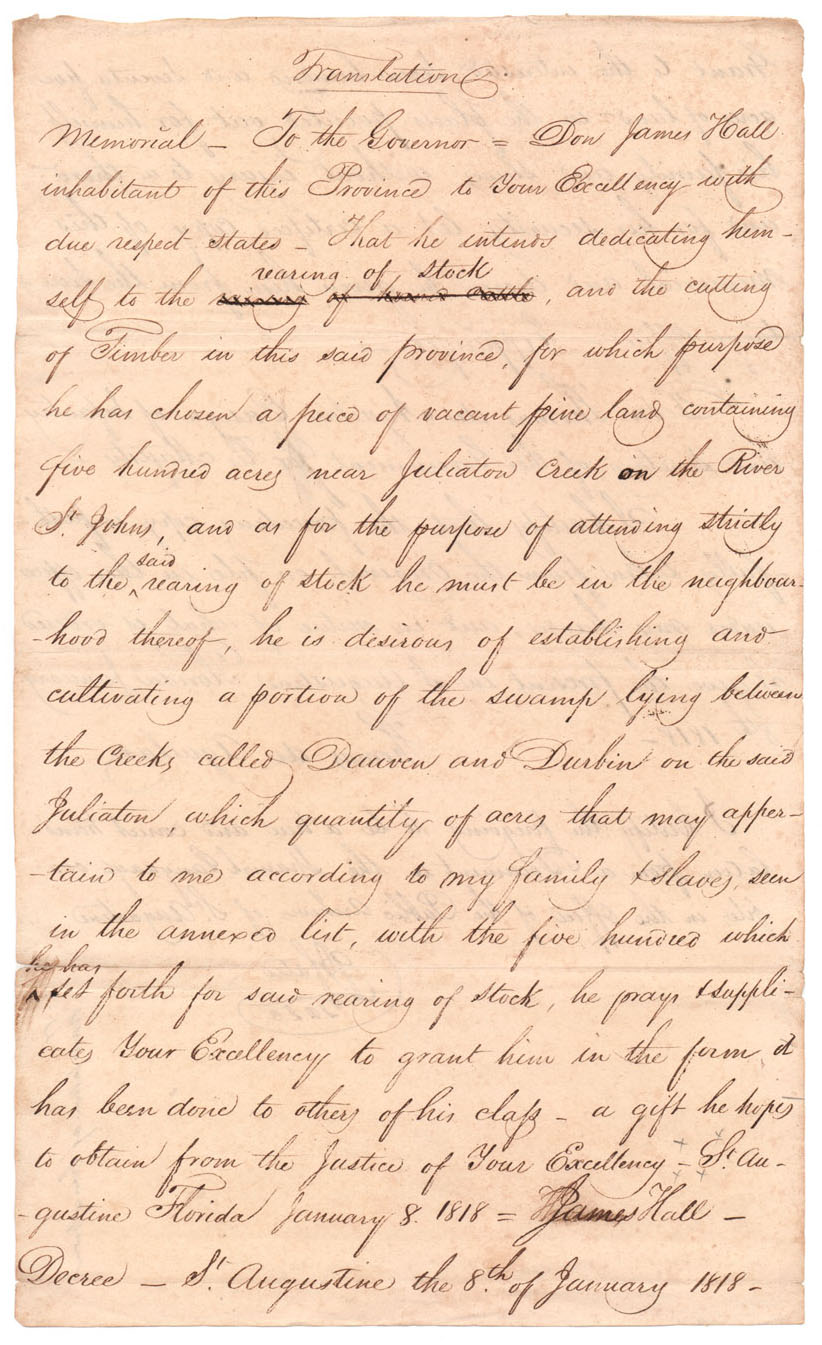 Translation
Memorial - To the Governor = Don James Hall
inhabitant of this Province to Your Excellency with
due respect states - That he intends dedicating him-
rearing of stock
self to the of horned Cattle, and the cutting
of Timber in this said province, for which purpose
he has chosen a peice of vacant pine land containing
five hundred acres near Juliaton Creek on the River
St. Johns, and as for the purpose of attending strictly
said
to the ^ rearing of stock he must be in the neighbour-
-hood thereof, he is desirous of establishing and
cultivating a portion of the swamp lying between
the Creeks called Dauven and Durbin on the said
Juliaton, which quantity of acres that may apper-
-tain to me according to my family & slaves, seen
in the annexed list, with the five hundred which
he has
^ set forth for said rearing of stock, he prays & suppli-
cates Your Excellency to grant him in the form, it
has been done to others of his class - a gift he hopes
to obtain from the Justice of Your Excellency - St. Au-
-gustine Florida January 8. 1818 = James Hall -
Decree - St. Augustine the 8th. of January 1818 -